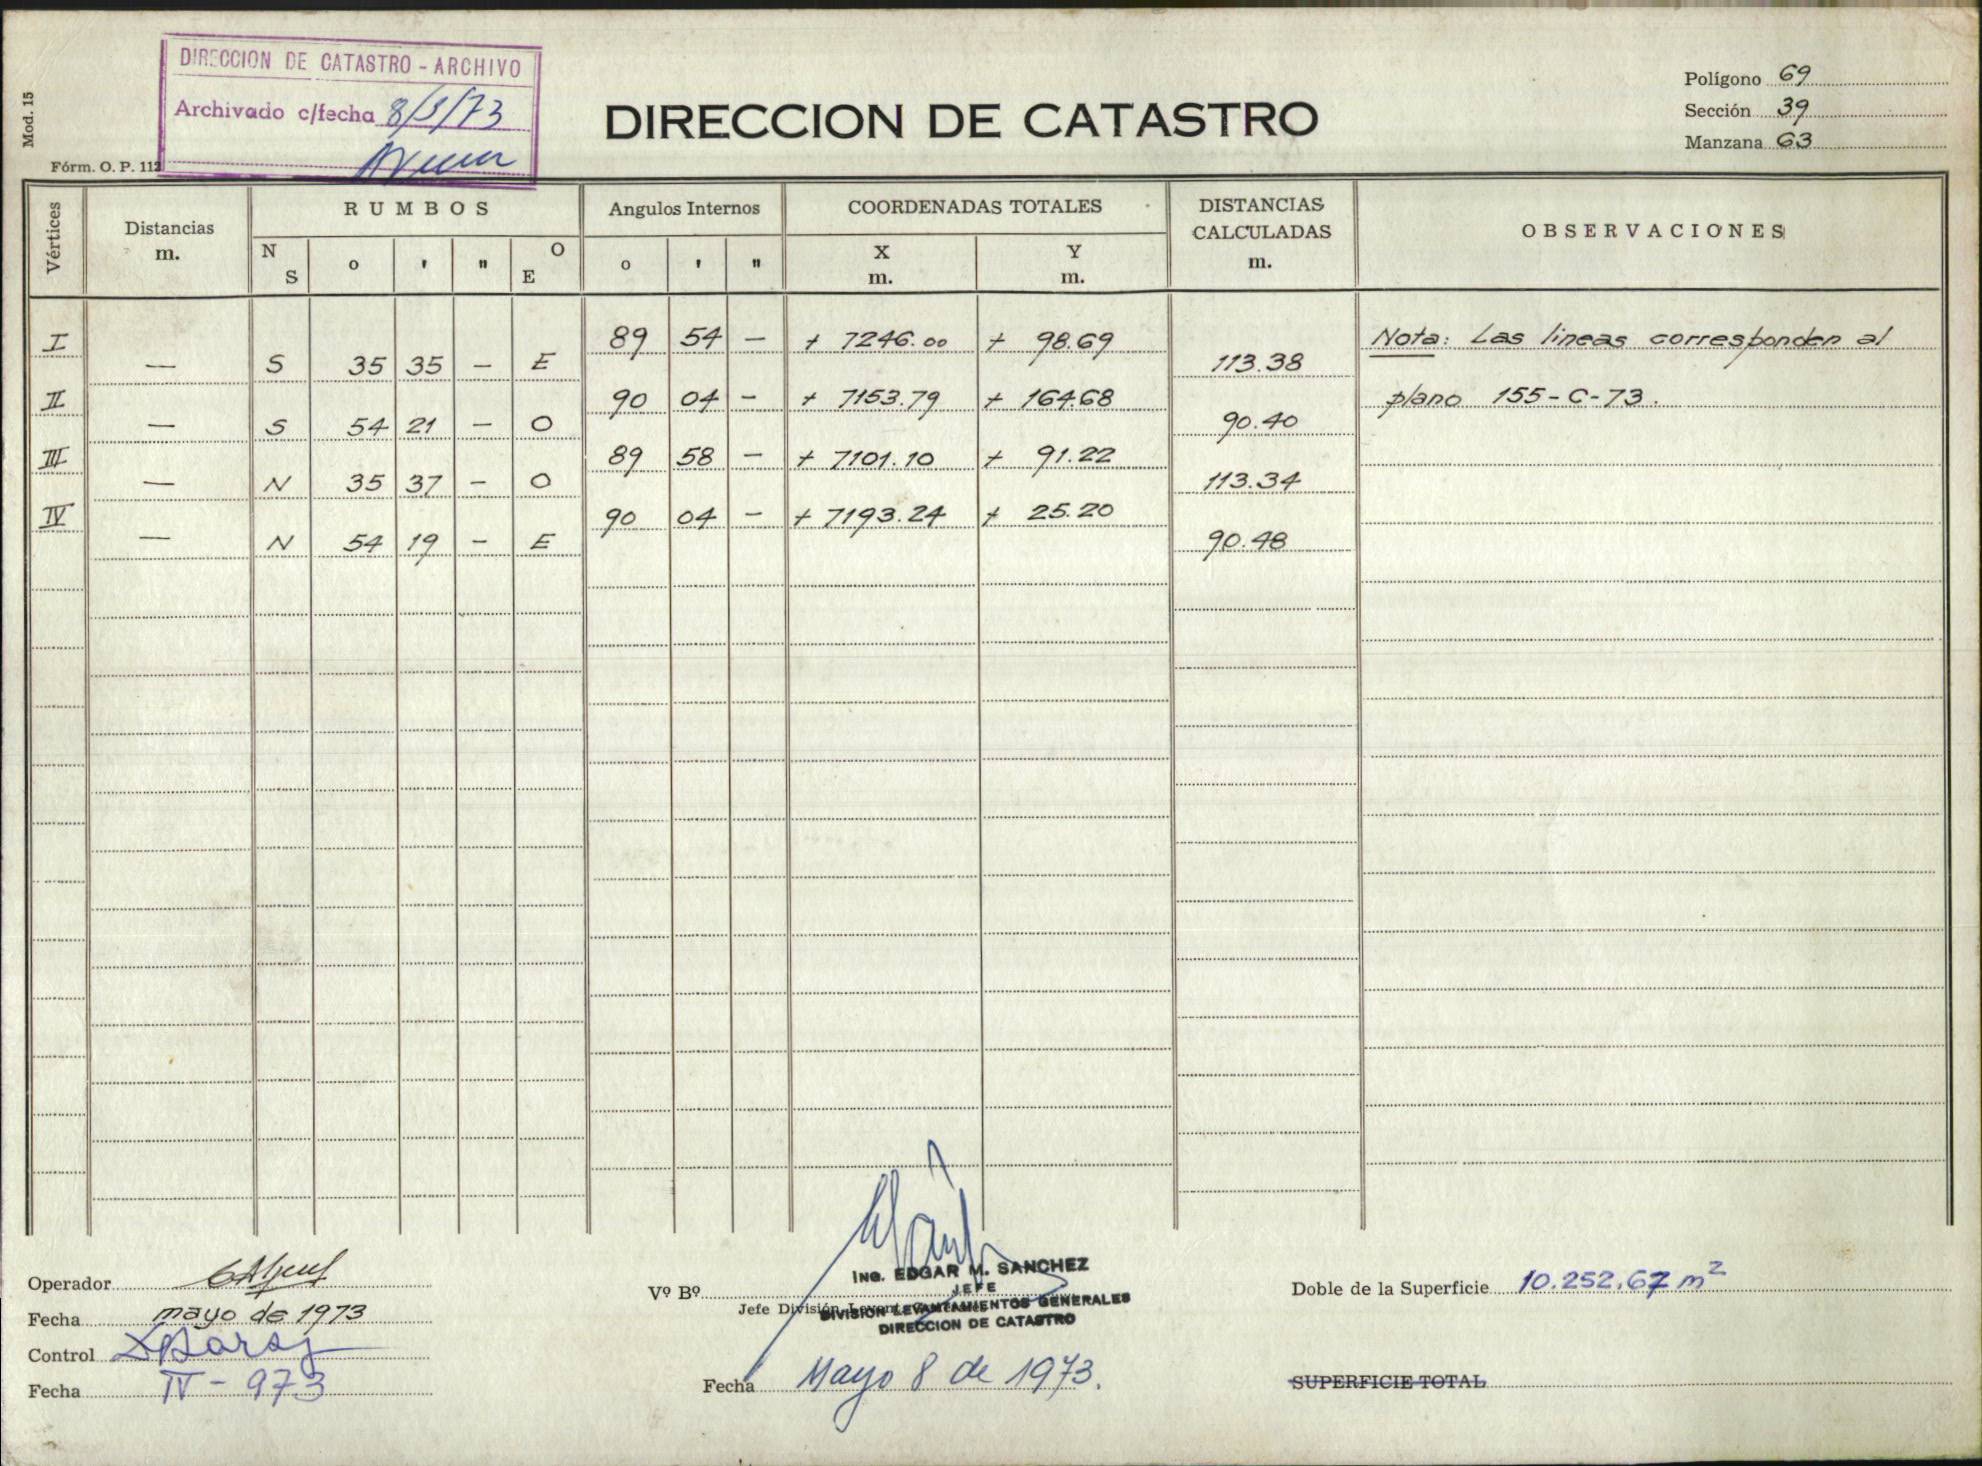 Mod. 15
DIRECCION DE CATASTRO - ARCHIVO
Archivado c/fecha 8/5/73
Fórm. O. P. 112
DIRECCION DE CATASTRO
Polígono 69
Sección 39
Manzana 63
Vértices
Distancias m.
RUMBOS
N S o ' " O E
Angulos Internos
o ' "
COORDENADAS TOTALES
X m. Y m.
DISTANCIAS CALCULADAS m.
OBSERVACIONES
I 89 54 — + 7246.00 + 98.69 Nota: Las lineas corresponden al
— S 35 35 — E 113.38
II 90 04 — + 7153.79 + 164.68 plano 155-C-73.
— S 54 21 — O 90.40
III 89 58 — + 7101.10 + 91.22
— N 35 37 — O 113.34
IV 90 04 — + 7193.24 + 25.20
— N 54 19 — E 90.48
Operador
Fecha mayo de 1973
Control
Fecha IV - 973
Vº Bº
Jefe División
Ing. EDGAR M. SANCHEZ
JEFE
DIVISION LEVANTAMIENTOS GENERALES
DIRECCION DE CATASTRO
Fecha Mayo 8 de 1973.
Doble de la Superficie 10.252,67 m²
SUPERFICIE TOTAL